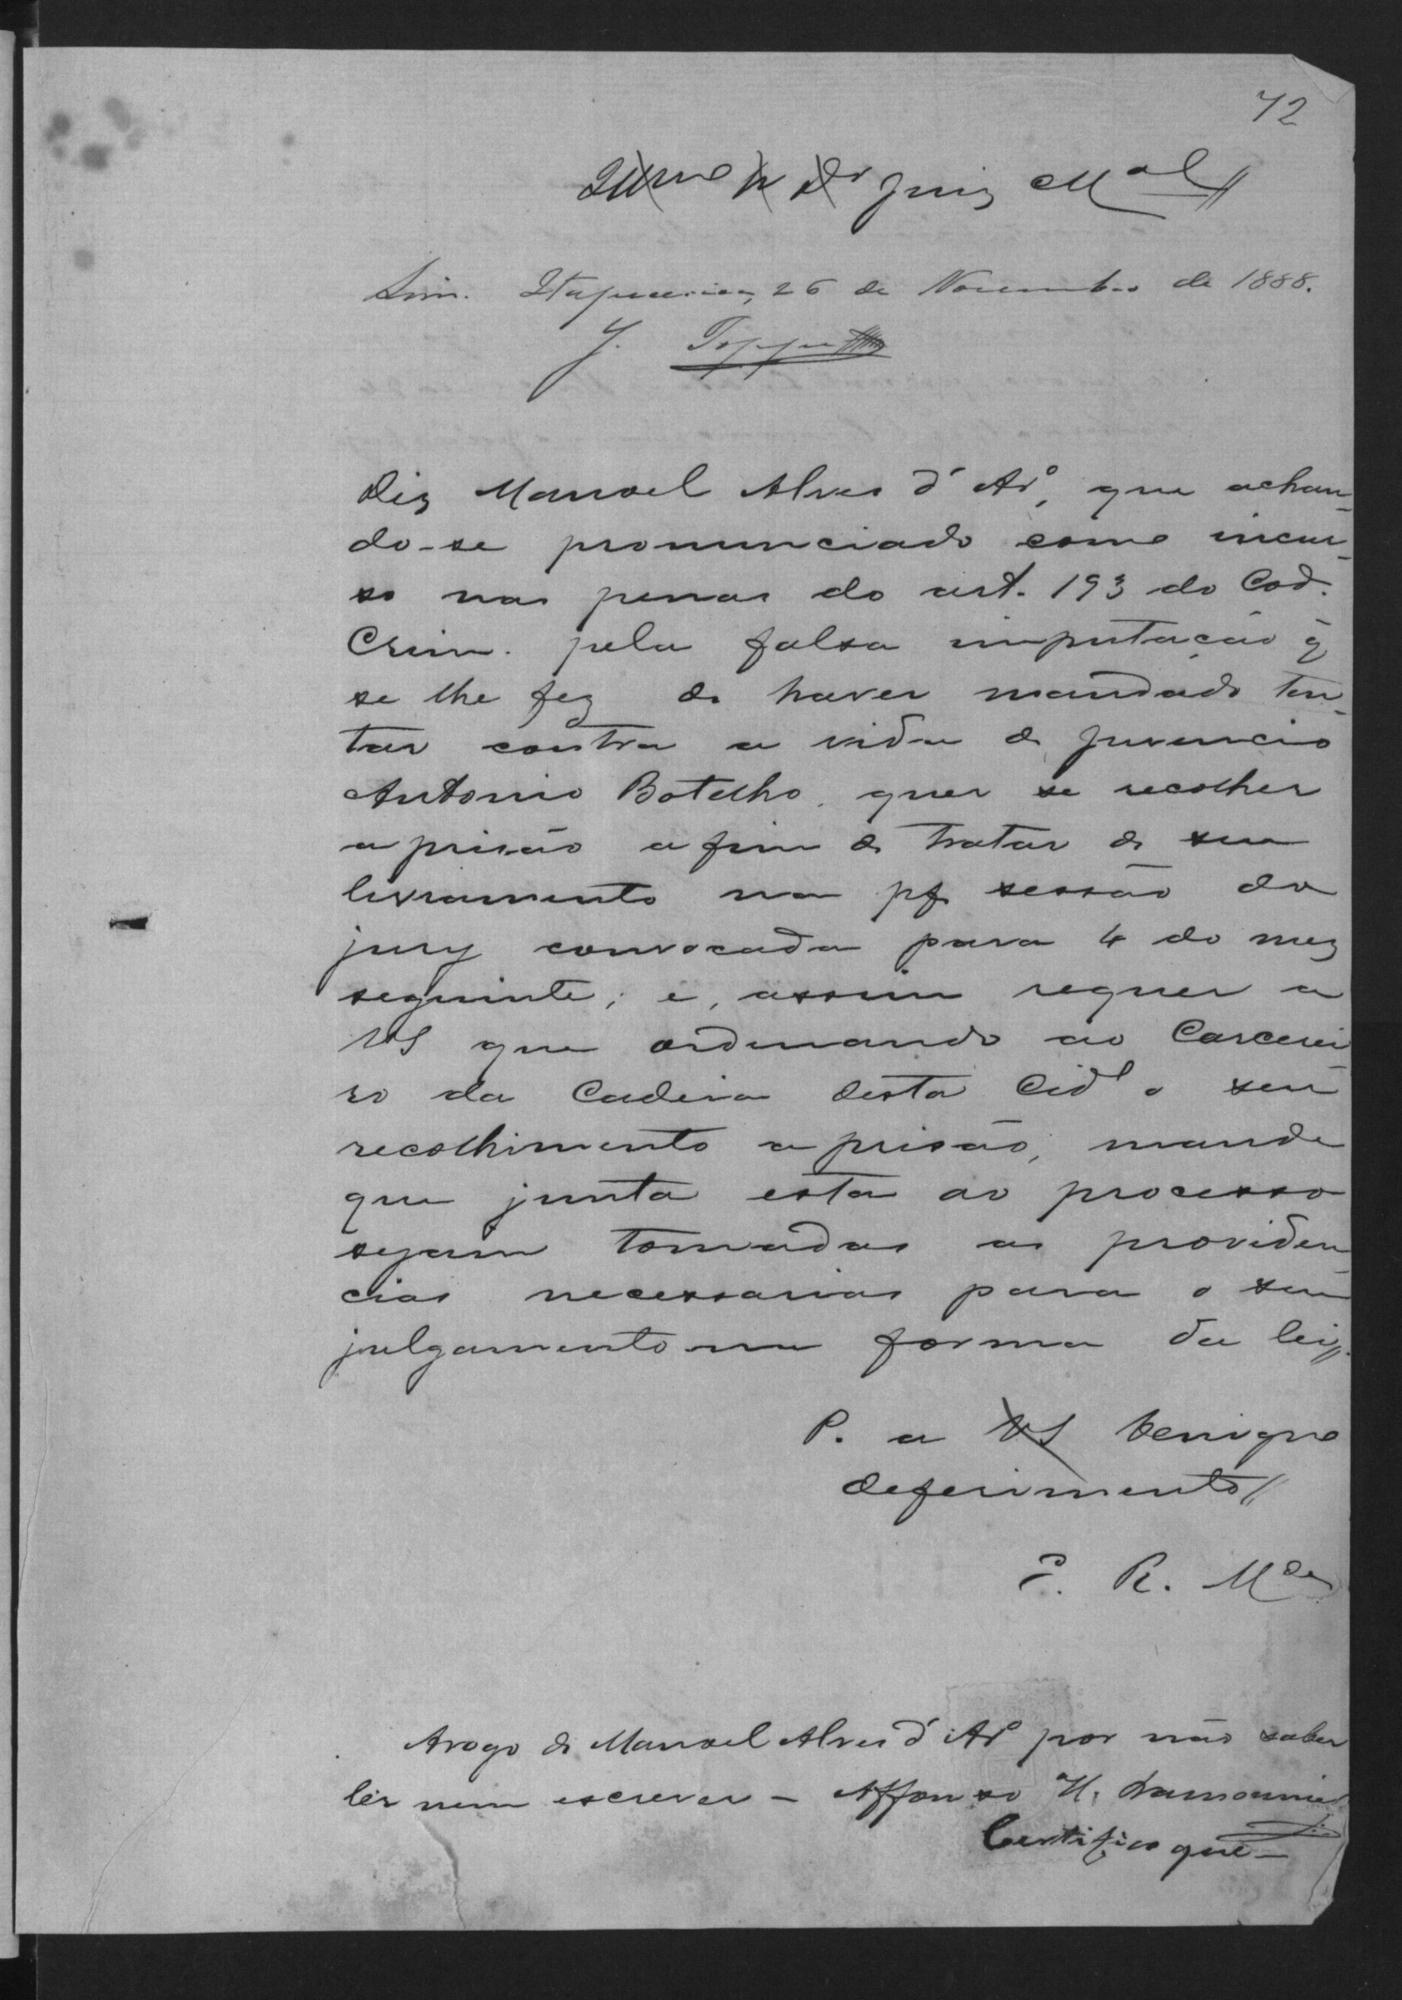 72
Illmo Sr Dr Juiz Mal
Sim. Itapecerica, 26 de Novembro de 1888.
J.
Diz Manoel Alves d'Aro, que achan-
do-se pronunciado como incur-
so nas penas do art. 193 do Cod.
Crim. pela falsa imputação q̃
se lhe fez de haver mandado ten-
tar contra a vida de Juvencio
Antonio Botelho, quer se recolher
a prisão a fim de tratar de seu
livramento na pf. sessão do
jury convocada para 4 do mez
seguinte; e, assim requer a
VS que ordenando ao Carcerei-
ro da Cadeia desta Cide o seu
recolhimento a prisão, mande
que junta esta ao processo
sejam tomadas as providen-
cias necessarias para o seu
julgamento na forma da lei.
P. a VS benigno
deferimento
E. R. Mce
Arogo de Manoel Alves d'Aro por não saber
ler nem escrever - Affonso H. Lamounier
Certifico que-